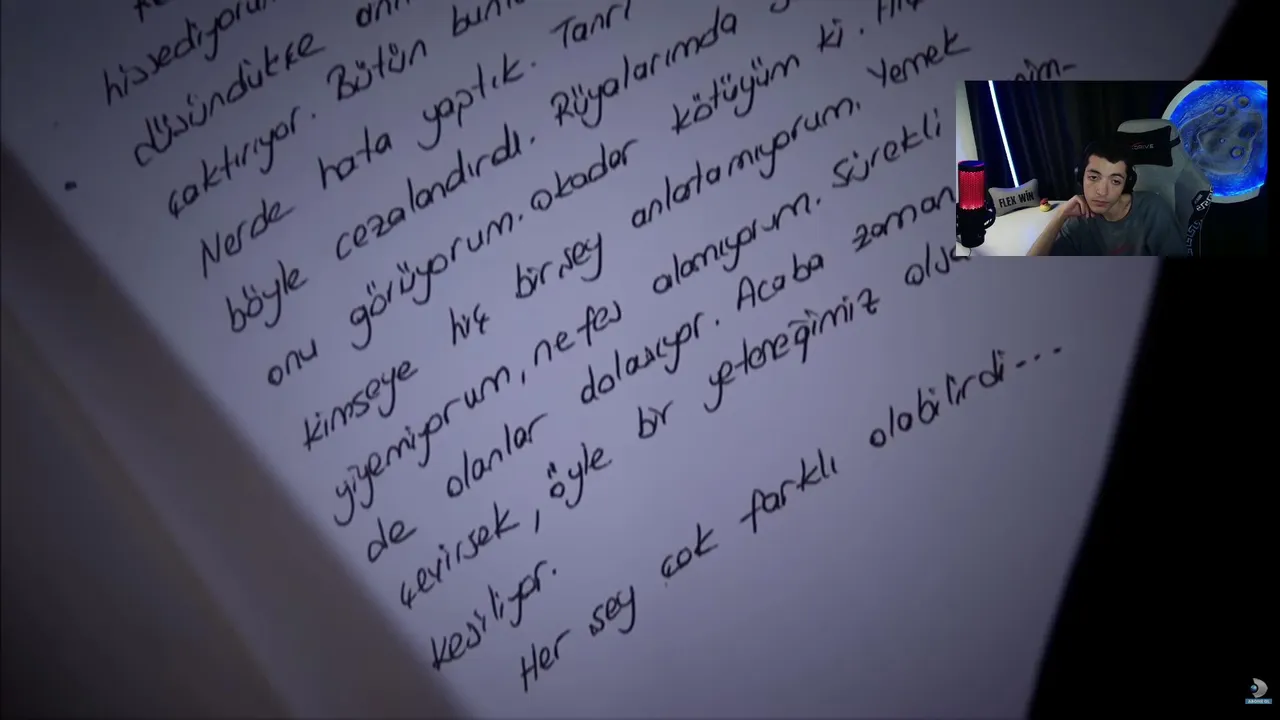 hissediyorum
düsündükçe
çaktırıyor. Bütün
Nerde hata yaptık. Tanrı
böyle cezalandırdı. Rüyalarımda
onu görüyorum. okadar kötüyüm ki.
kimseye hiç birsey anlatamıyorum. Yemek
yiyemiyorum, nefes alamıyorum. sürekli
de olanlar dolasıyor. Acaba zaman
çevirsek, öyle bir yeteneğimiz
kesiliyor.
Her sey çok farklı olabilirdi...
FLEX WIN
ABONE OL